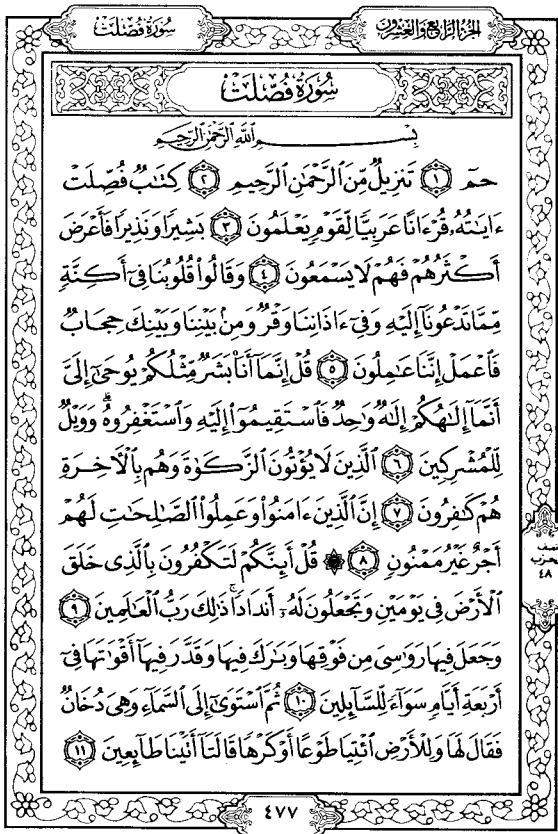 الجزء الرابع والعشرون
سورة فصلت
سُورَةُ فُصِّلَتْ
بِسْمِ اللَّهِ الرَّحْمَٰنِ الرَّحِيمِ
حمٓ ١ تَنزِيلٌ مِّنَ ٱلرَّحْمَٰنِ ٱلرَّحِيمِ ٢ كِتَٰبٌ فُصِّلَتْ
ءَايَٰتُهُۥ قُرْءَانًا عَرَبِيًّا لِّقَوْمٍ يَعْلَمُونَ ٣ بَشِيرًا وَنَذِيرًا فَأَعْرَضَ
أَكْثَرُهُمْ فَهُمْ لَا يَسْمَعُونَ ٤ وَقَالُوا۟ قُلُوبُنَا فِىٓ أَكِنَّةٍ
مِّمَّا تَدْعُونَآ إِلَيْهِ وَفِىٓ ءَاذَانِنَا وَقْرٌ وَمِنۢ بَيْنِنَا وَبَيْنِكَ حِجَابٌ
فَٱعْمَلْ إِنَّنَا عَٰمِلُونَ ٥ قُلْ إِنَّمَآ أَنَا۠ بَشَرٌ مِّثْلُكُمْ يُوحَىٰٓ إِلَىَّ
أَنَّمَآ إِلَٰهُكُمْ إِلَٰهٌ وَٰحِدٌ فَٱسْتَقِيمُوٓا۟ إِلَيْهِ وَٱسْتَغْفِرُوهُ ۗ وَوَيْلٌ
لِّلْمُشْرِكِينَ ٦ ٱلَّذِينَ لَا يُؤْتُونَ ٱلزَّكَوٰةَ وَهُم بِٱلْءَاخِرَةِ
هُمْ كَٰفِرُونَ ٧ إِنَّ ٱلَّذِينَ ءَامَنُوا۟ وَعَمِلُوا۟ ٱلصَّٰلِحَٰتِ لَهُمْ
أَجْرٌ غَيْرُ مَمْنُونٍ ٨ ۞ قُلْ أَئِنَّكُمْ لَتَكْفُرُونَ بِٱلَّذِى خَلَقَ
ٱلْأَرْضَ فِى يَوْمَيْنِ وَتَجْعَلُونَ لَهُۥٓ أَندَادًا ۚ ذَٰلِكَ رَبُّ ٱلْعَٰلَمِينَ ٩
وَجَعَلَ فِيهَا رَوَٰسِىَ مِن فَوْقِهَا وَبَٰرَكَ فِيهَا وَقَدَّرَ فِيهَآ أَقْوَٰتَهَا فِىٓ
أَرْبَعَةِ أَيَّامٍ سَوَآءً لِّلسَّآئِلِينَ ١٠ ثُمَّ ٱسْتَوَىٰٓ إِلَى ٱلسَّمَآءِ وَهِىَ دُخَانٌ
فَقَالَ لَهَا وَلِلْأَرْضِ ٱئْتِيَا طَوْعًا أَوْ كَرْهًا قَالَتَآ أَتَيْنَا طَآئِعِينَ ١١
نصف
الحزب
٤٨
٤٧٧